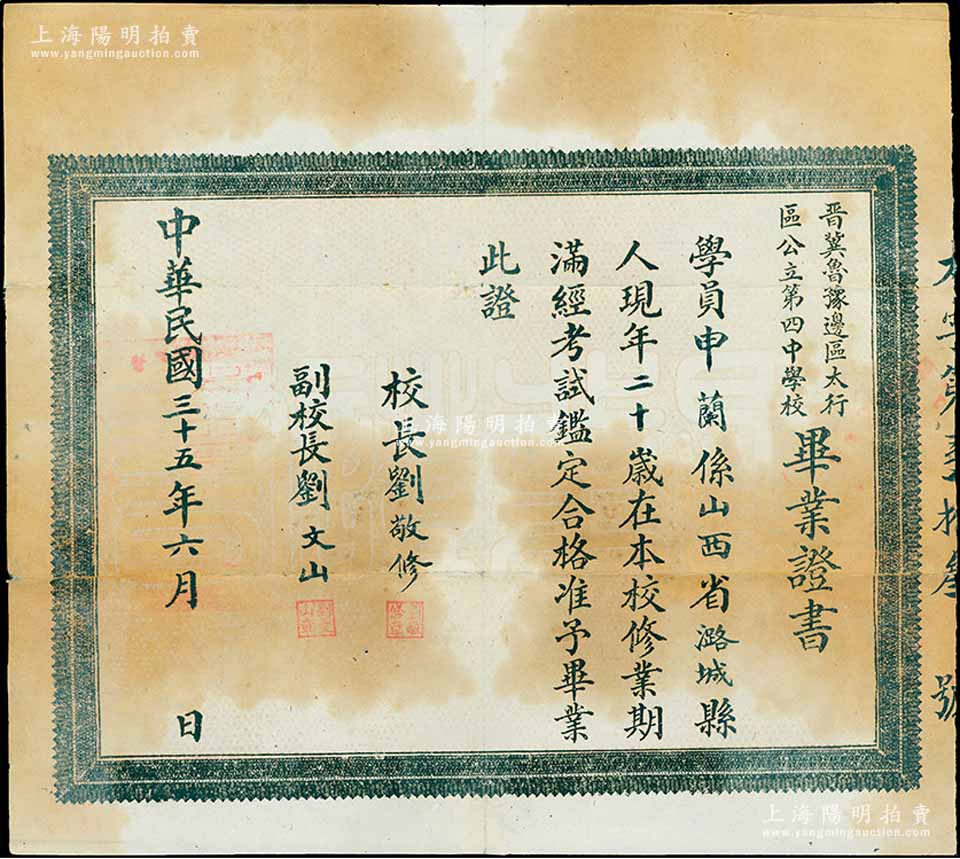 上海陽明拍賣
www.yangmingauction.com
晋冀魯豫邊區太行
區公立第四中學校
畢業證書
學員申蘭係山西省潞城縣
人現年二十歲在本校修業期
滿經考試鑑定合格准予畢業
此證
校長劉敬修
副校長劉文山
中華民國三十五年六月 日
號
上海陽明拍賣
www.yangmingauction.com
上海陽明拍賣
www.yangmingauction.com